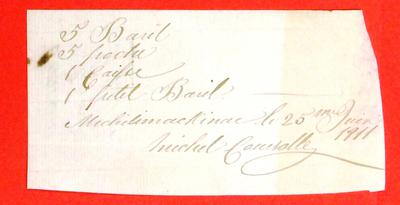 5 Baril
5 poche
1 Caisse
1 petit Baril
Michilimackinac le 25 me Juin
1811
Michel Courville